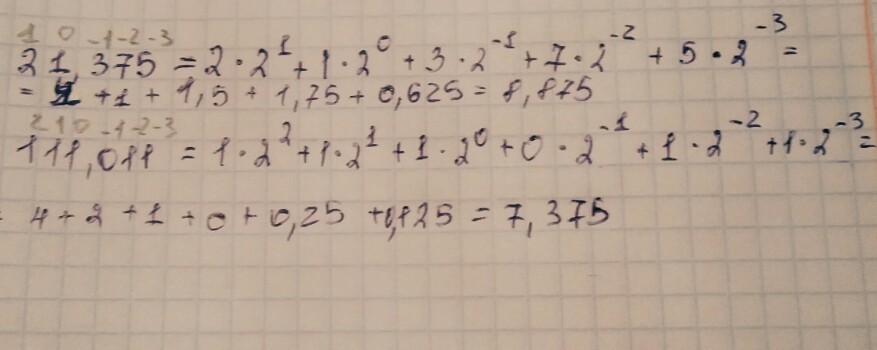 1 0 -1-2-3
21,375 = 2·2¹ + 1·2⁰ + 3·2⁻¹ + 7·2⁻² + 5·2⁻³ =
= 4 + 1 + 1,5 + 1,75 + 0,625 = 8,875
2 1 0 -1-2-3
111,011 = 1·2² + 1·2¹ + 1·2⁰ + 0·2⁻¹ + 1·2⁻² + 1·2⁻³ =
= 4 + 2 + 1 + 0 + 0,25 + 0,125 = 7,375